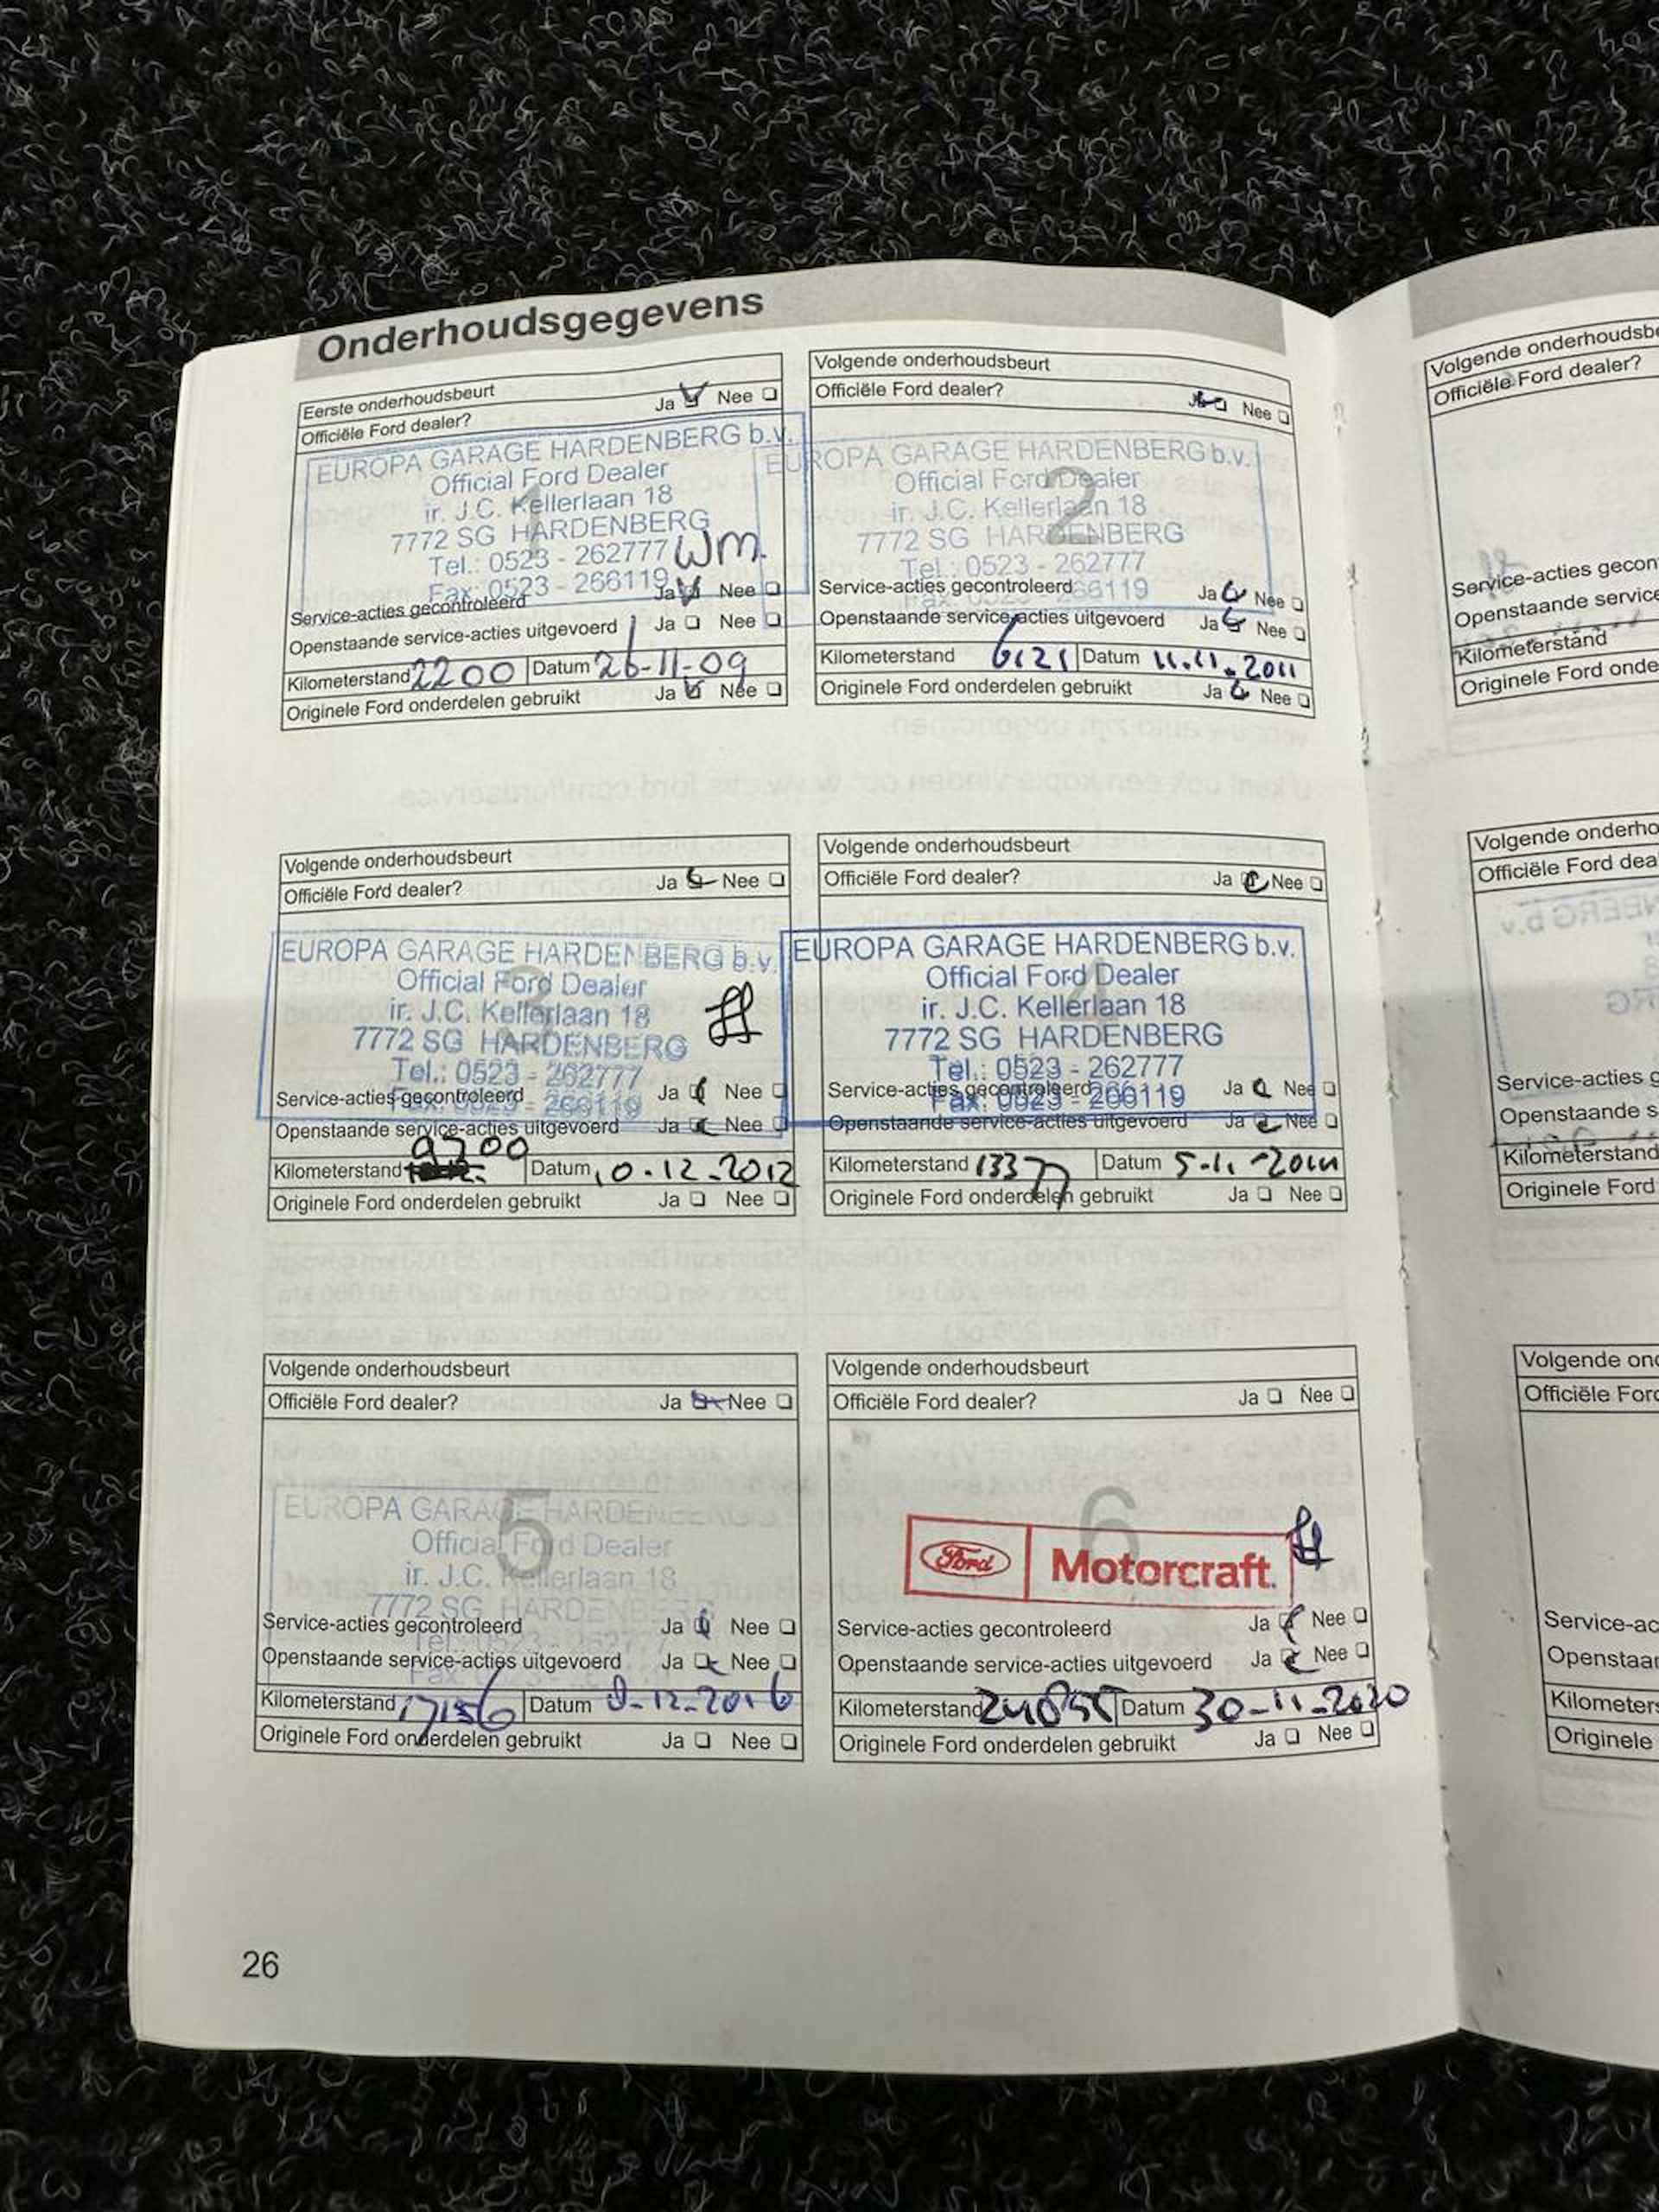 Onderhoudsgegevens
Eerste onderhoudsbeurt
Officiële Ford dealer? Ja Nee
EUROPA GARAGE HARDENBERG b.v.
Official Ford Dealer
1
ir. J.C. Kellerlaan 18
7772 SG HARDENBERG
Tel.: 0523 - 262777 WM.
Fax: 0523 - 266119
Service-acties gecontroleerd Ja Nee
Openstaande service-acties uitgevoerd Ja Nee
Kilometerstand 2200 Datum 26-11-09
Originele Ford onderdelen gebruikt Ja Nee
Volgende onderhoudsbeurt
Officiële Ford dealer? Nee
EUROPA GARAGE HARDENBERG b.v.
Official Ford Dealer
2
ir. J.C. Kellerlaan 18
7772 SG HARDENBERG
Tel.: 0523 - 262777
Service-acties gecontroleerd Ja Nee
Fax: 0523 - 266119
Openstaande service-acties uitgevoerd Ja Nee
Kilometerstand 6121 Datum 11.11.2011
Originele Ford onderdelen gebruikt Ja Nee
Volgende onderhoudsbeurt
Officiële Ford dealer? Ja Nee
EUROPA GARAGE HARDENBERG b.v.
Official Ford Dealer
3
ir. J.C. Kellerlaan 18
7772 SG HARDENBERG
Tel.: 0523 - 262777
Service-acties gecontroleerd Ja Nee
Fax: 0523 - 266119
Openstaande service-acties uitgevoerd Ja Nee
Kilometerstand 9700 Datum 10-12-2012
Originele Ford onderdelen gebruikt Ja Nee
Volgende onderhoudsbeurt
Officiële Ford dealer? Ja Nee
EUROPA GARAGE HARDENBERG b.v.
Official Ford Dealer
4
ir. J.C. Kellerlaan 18
7772 SG HARDENBERG
Tel.: 0523 - 262777
Service-acties gecontroleerd Ja Nee
Fax: 0523 - 266119
Openstaande service-acties uitgevoerd Ja Nee
Kilometerstand 13377 Datum
Originele Ford onderdelen gebruikt Ja Nee
Volgende onderhoudsbeurt
Officiële Ford dealer? Ja Nee
EUROPA GARAGE HARDENBERG
Official Ford Dealer
5
ir. J.C. Kellerlaan 18
7772 SG HARDENBERG
Service-acties gecontroleerd Ja Nee
Tel.: 0523 - 262777
Openstaande service-acties uitgevoerd Ja Nee
Fax:
Kilometerstand 17156 Datum 8-12-2016
Originele Ford onderdelen gebruikt Ja Nee
Volgende onderhoudsbeurt
Officiële Ford dealer? Ja Nee
6
Ford Motorcraft.
Service-acties gecontroleerd Ja Nee
Openstaande service-acties uitgevoerd Ja Nee
Kilometerstand 24085 Datum 30-11-2020
Originele Ford onderdelen gebruikt Ja Nee
26
Volgende onderhoudsbe
Officiële Ford dealer?
Service-acties gecon
Openstaande service
Kilometerstand
Originele Ford onde
Volgende onderho
Officiële Ford deal
Service-acties g
Openstaande s
Kilometerstand
Originele Ford
Volgende ond
Officiële Ford
Service-ac
Openstaan
Kilometers
Originele